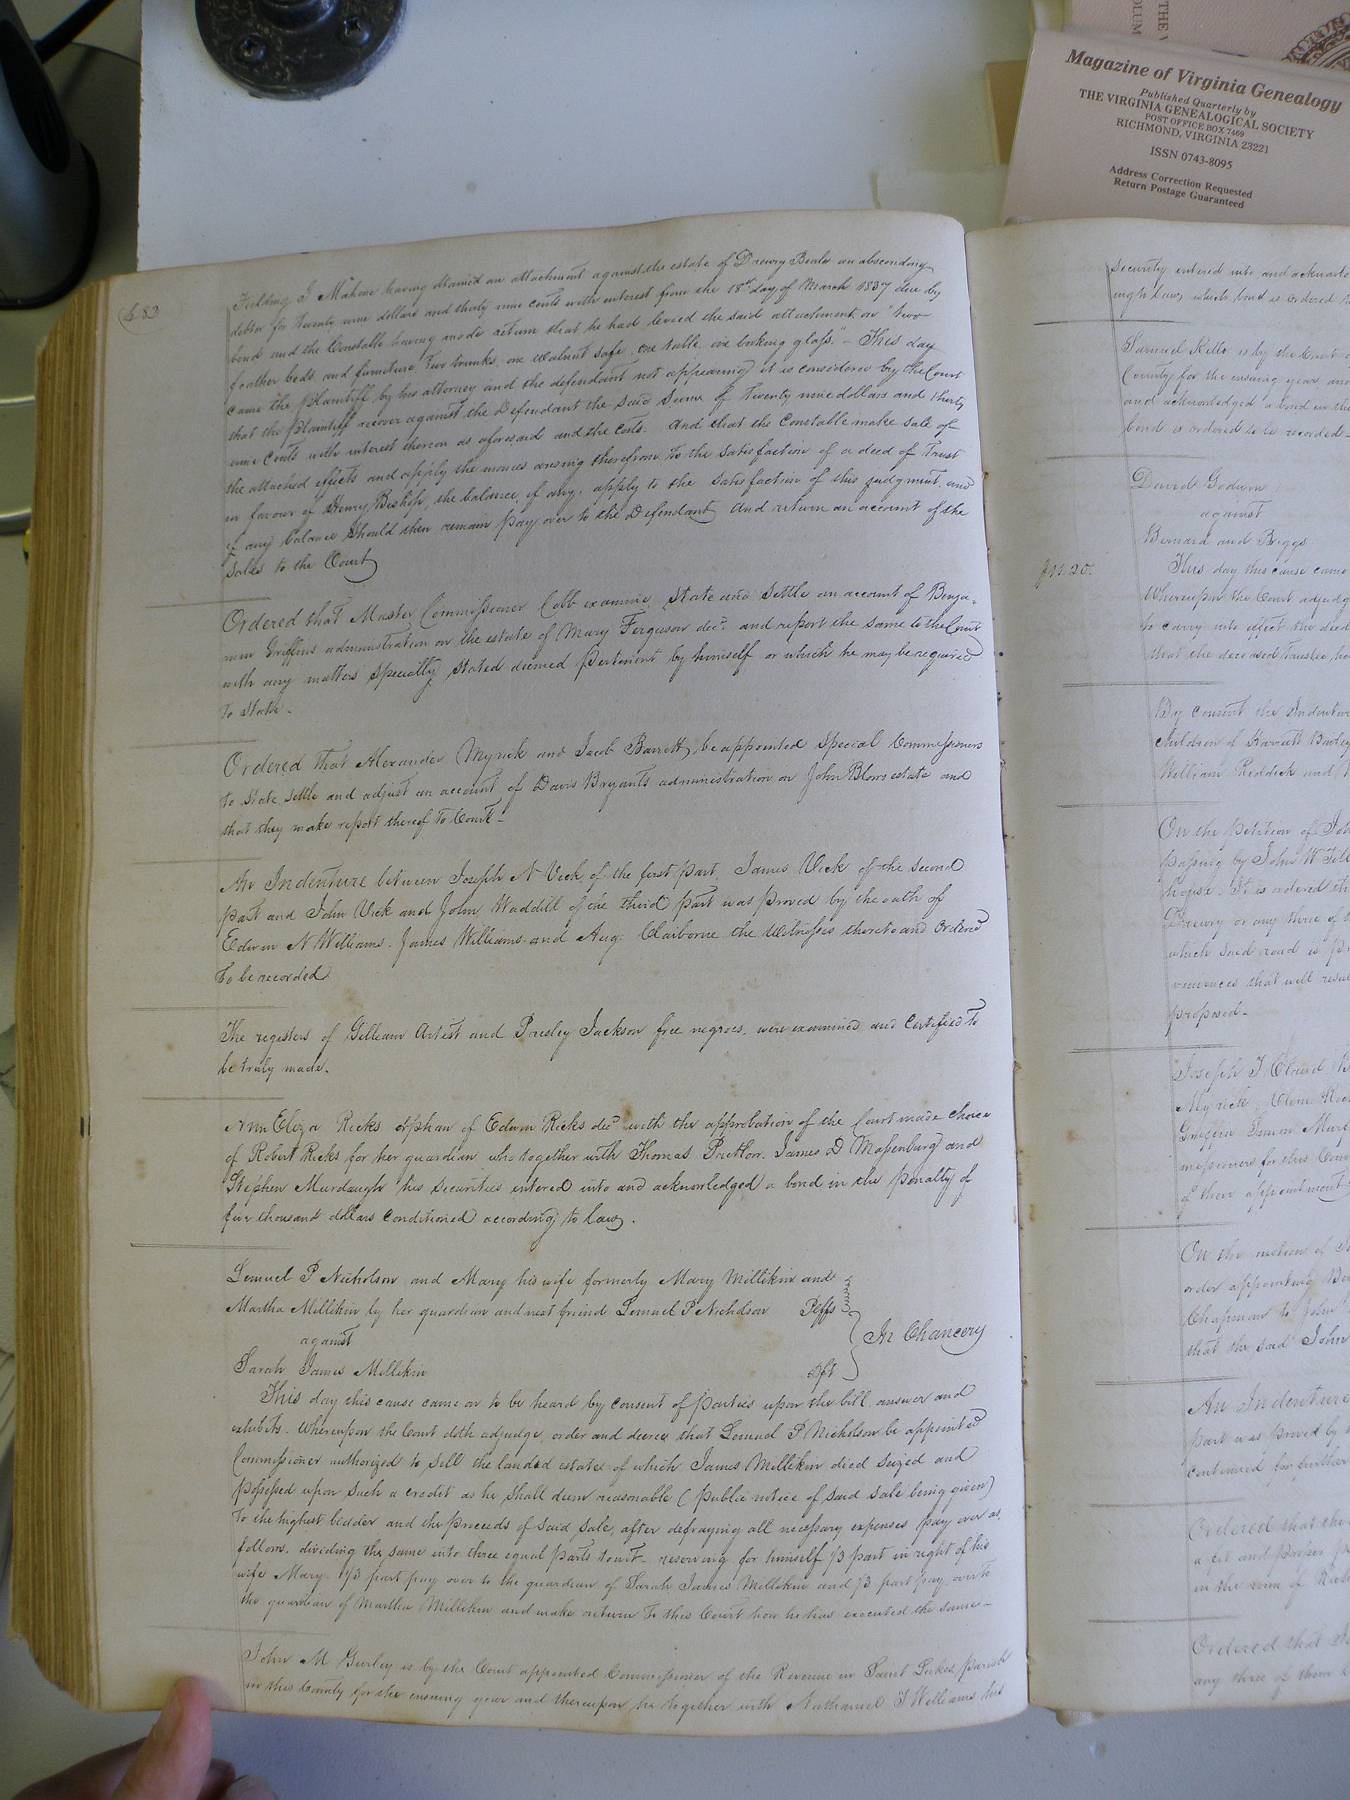 483
Fielding J Mahone having obtained an attachment against the estate of Drewry Beale an absconding
debtor for Twenty nine dollars and thirty nine cents with interest from the 18th day of March 1837 due by
bond and the Constable having made return that he had levied the said attachment on "two
feather beds and furniture, Two trunks, one walnut safe, one table one looking glass." - This day
came the Plaintiff by his attorney and the defendant not appearing it is considered by the Court
that the Plaintiff recover against the Defendant the said sum of Twenty nine dollars and thirty
nine Cents with interest thereon as aforesaid and the Costs. And that the Constable make sale of
the attached effects and apply the monies arising therefrom to the satisfaction of a deed of Trust
in favour of Henry Bishop, the balance, if any, apply to the satisfaction of this judgment, and
if any balance should then remain pay over to the Defendant And return an account of the
Sales to the Court
Ordered that Master Commissioner Cobb examine, State and Settle an account of Benja-
min Griffins administration on the estate of Mary Ferguson decd. and report the same to the Court
with any matters specially stated deemed pertinent by himself or which he may be required
to State.
Ordered that Alexander Myrick and Jacob Barrett, be appointed Special Commissioners
to State, settle and adjust an account of Davis Bryants administration on John Blows estate and
that they make report thereof to Court -
An Indenture between Joseph N Vick of the first part, James Vick of the second
part and John Vick and John Waddill of the third part was proved by the oath of
Edwin N Williams. James Williams and Aug. Claiborne the witnesses thereto and ordered
to be recorded
The registers of Gilliam Artist and Presley Jackson free negroes, were examined and Certified to
be truly made.
Ann Eliza Ricks orphan of Edwin Ricks decd with the approbation of the Court made choice
of Robert Ricks for her guardian who together with Thomas Pretlow. James D Massenburg and
Stephen Murdaugh his securities entered into and acknowledged a bond in the penalty of
five thousand dollars conditioned according to law.
Lemuel P Nicholson and Mary his wife formerly Mary Millikin and
Martha Millikin by her guardian and next friend Lemuel P Nicholson Plffs
against In Chancery
Sarah James Millikin Dft
This day this cause came on to be heard by consent of parties upon the bill, answer and
exhibits. Whereupon the Court doth adjudge, order and decree that Lemuel P Nicholson be appointed
Commissioner authorized to sell the landed estate of which James Millikin died seized and
possessed upon such a credit as he shall deem reasonable (public notice of said sale being given)
to the highest bidder and the proceeds of said sale, after defraying all necessary expenses pay over as
follows. dividing the same into three equal parts towit - reserving for himself 1/3 part in right of his
wife Mary. 1/3 part pay over to the guardian of Sarah James Millikin and 1/3 part pay over to
the guardian of Martha Millikin and make return to this Court how he has executed the same -
John M Gurley is by the Court appointed Commissioner of the Revenue in Saint Lukes Parish
in this County for the ensuing year and thereupon he together with Nathaniel T Williams his
security entered into and acknowle
ing to law, which bond is ordered
Samuel Kello is by the Court
County for the ensuing year and
and acknowledged a bond in the
bond is ordered to be recorded -
David Godwin
against
Bernard and Briggs
This day this cause came
Whereupon the Court adjudg
to carry into effect the deed
that the deceased Trustee
By consent the Indenture
children of
William Reddick and
On the petition of Joh
passing by John W
house. It is ordered th
Drewry or any three of
which said road is pr
veniences that will resu
proposed -
Joseph T Claud
Myrick
Griffin Simon Mur
missioners for this Coun
of their appointment
On the motion of
order appointing Ben
Chapman to John
that the said John
An Indenture
part was proved by
continued for further
Ordered that the
a fit and proper
in the room of
Ordered that
any three of them
Magazine of Virginia Genealogy
Published Quarterly by
THE VIRGINIA GENEALOGICAL SOCIETY
POST OFFICE BOX 7469
RICHMOND, VIRGINIA 23221
ISSN 0743-8095
Address Correction Requested
Return Postage Guaranteed
THE V
OLUM